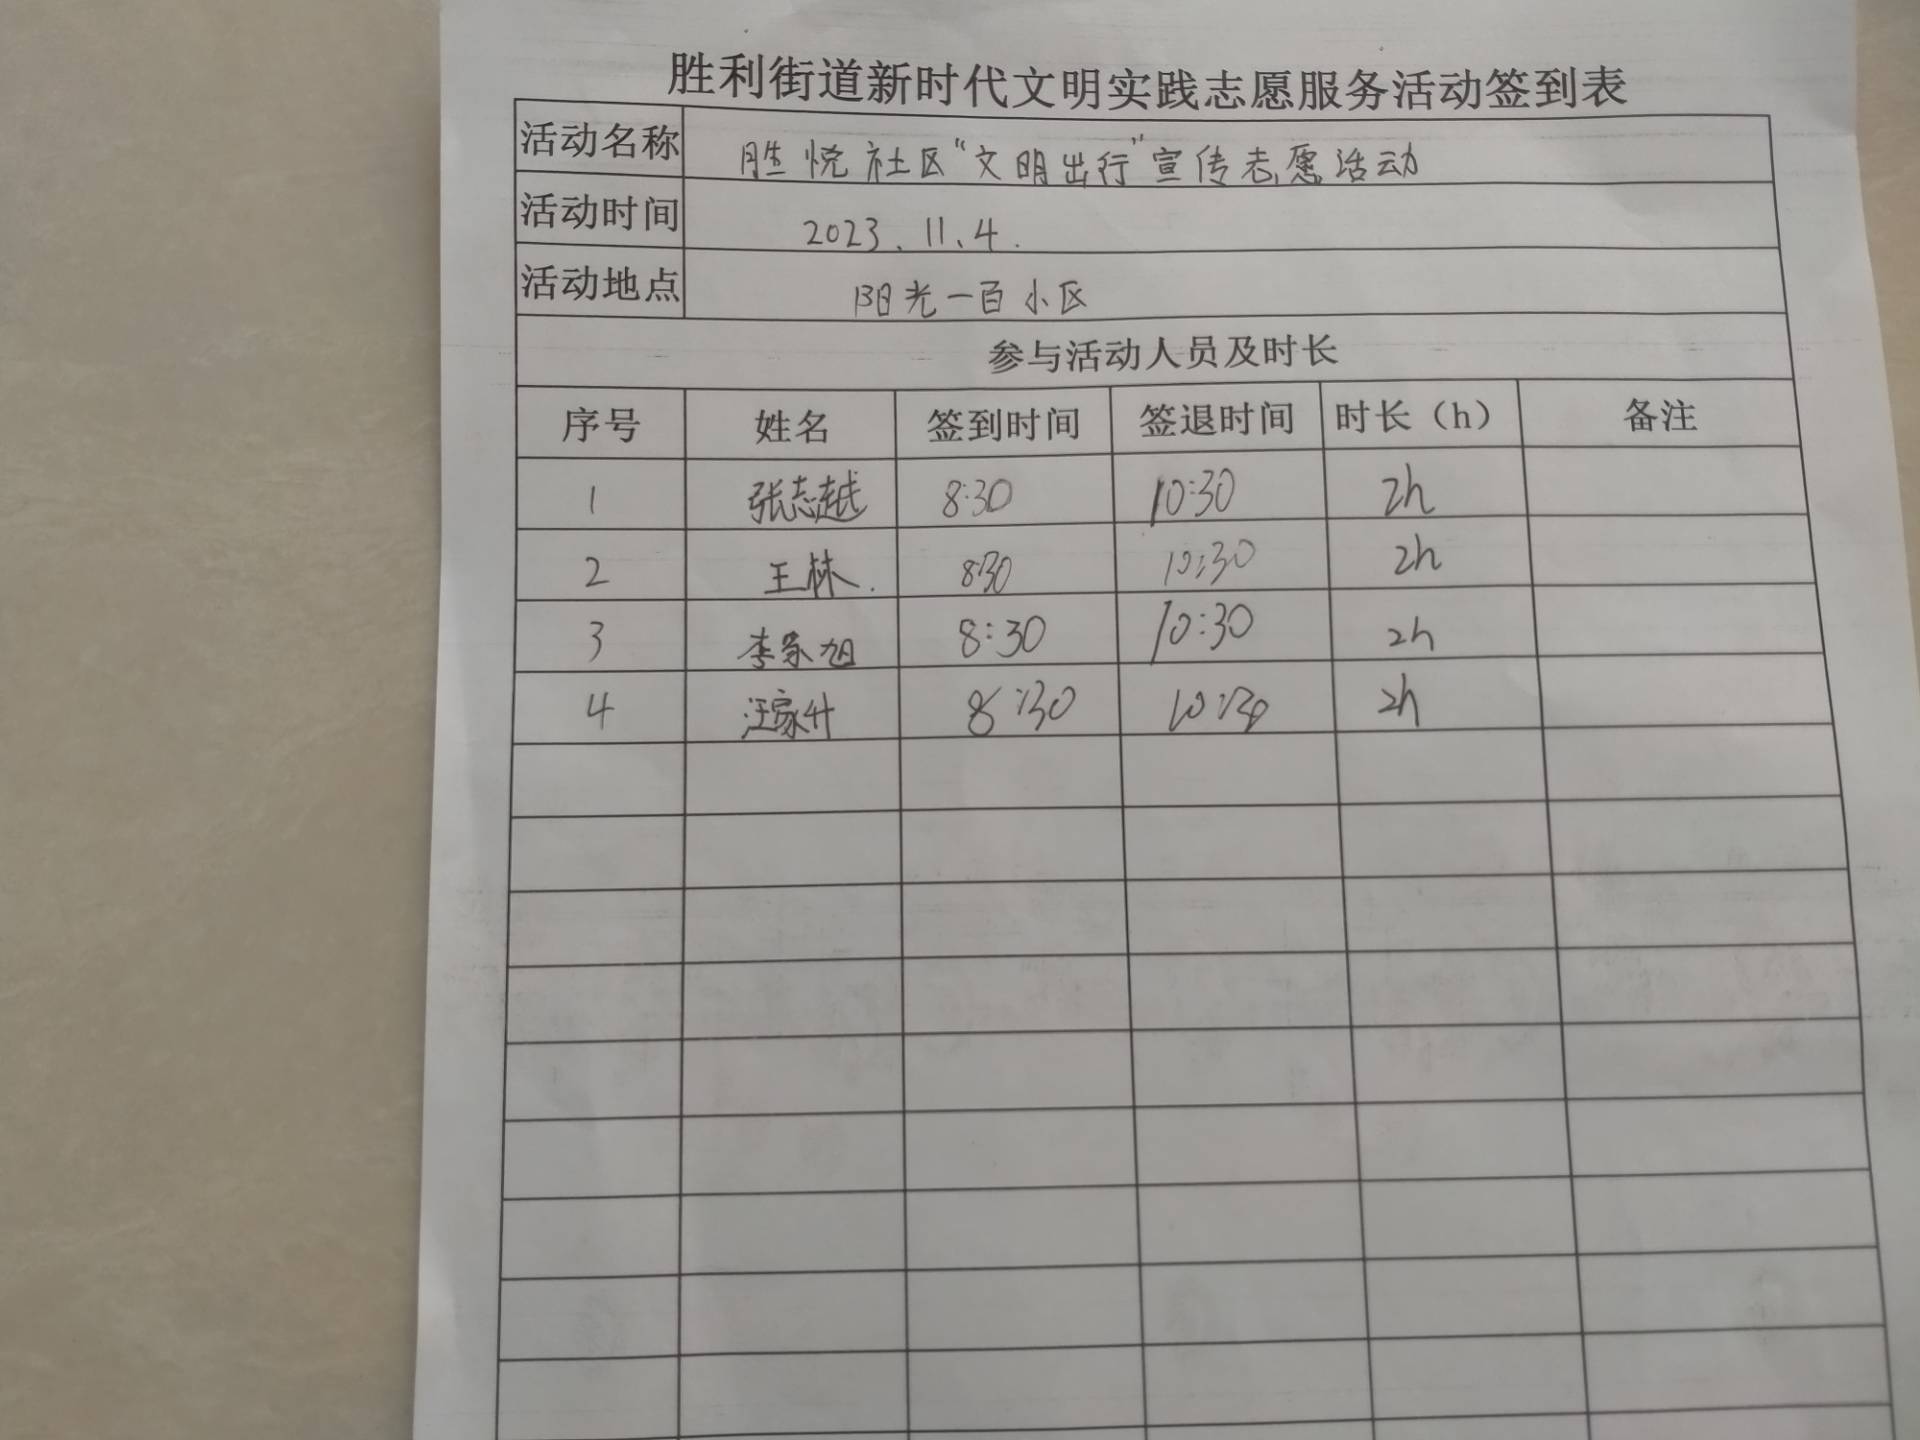 胜利街道新时代文明实践志愿服务活动签到表
活动名称 胜悦社区“文明出行”宣传志愿活动
活动时间 2023.11.4.
活动地点 阳光一百小区
参与活动人员及时长
序号 姓名 签到时间 签退时间 时长（h） 备注
1 张志越 8:30 10:30 2h
2 王林. 8:30 10:30 2h
3 李家旭 8:30 10:30 2h
4 汪家升 8:30 10:30 2h